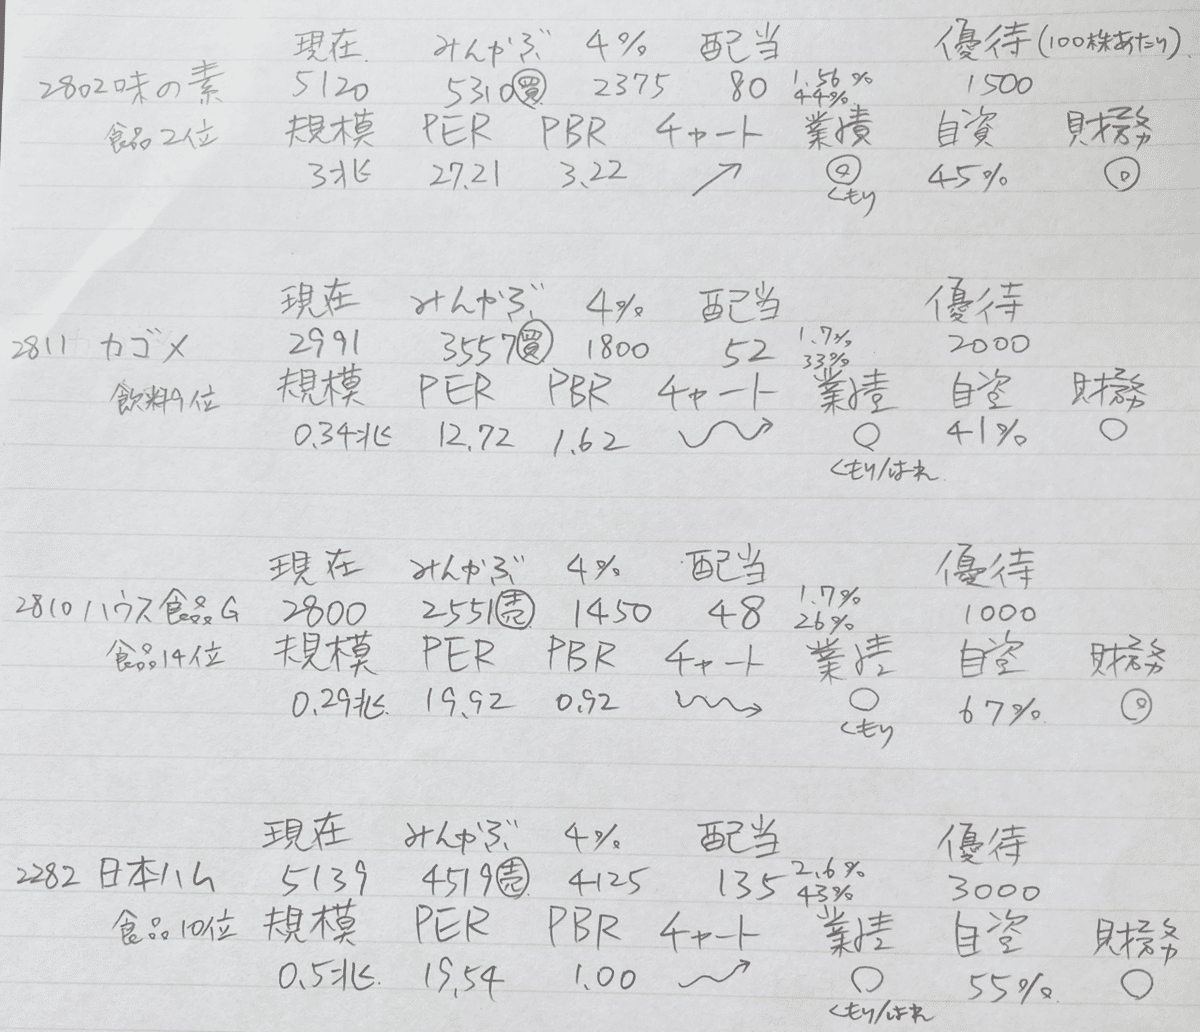 現在 みんかぶ 4% 配当 優待(100株あたり)
2802 味の素 5120 5310 買 2375 80 1.56% 44% 1500
食品2位 規模 PER PBR チャート 業績 自資 財務
3兆 27.21 3.22 ↗ ◎ 45% ◎
くもり
現在 みんかぶ 4% 配当 優待
2811 カゴメ 2991 3557 買 1800 52 1.7% 33% 2000
飲料9位 規模 PER PBR チャート 業績 自資 財務
0.34兆 12.72 1.62 〜→ ○ 41% ○
くもり/はれ
現在 みんかぶ 4% 配当 優待
2810 ハウス食品G 2800 2551 売 1450 48 1.7% 26% 1000
食品14位 規模 PER PBR チャート 業績 自資 財務
0.29兆 19.92 0.92 〜→ ○ 67% ◎
くもり
現在 みんかぶ 4% 配当 優待
2282 日本ハム 5139 4519 売 4125 135 2.6% 43% 3000
食品10位 規模 PER PBR チャート 業績 自資 財務
0.5兆 19.54 1.00 〜→ ○ 55% ○
くもり/はれ